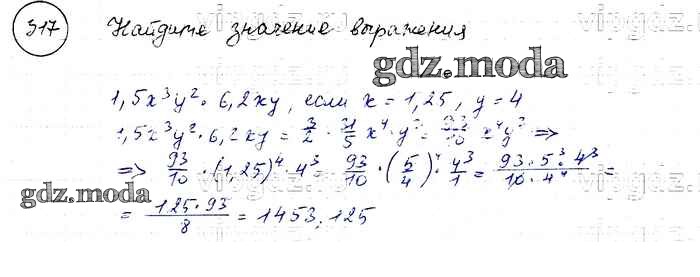 317 Найдите значение выражения
gdz.moda
1,5x³y² · 6,2xy, если x = 1,25, y = 4
1,5x³y² · 6,2xy = 3/2 · 31/5 x⁴ · y³ = 93/10 x⁴y³ =>
=> 93/10 · (1,25)⁴ · 4³ = 93/10 · (5/4)⁴ · 4³/1 = 93 · 5³ · 4³/10 · 4⁴ =
gdz.moda
= 125 · 93/8 = 1453,125